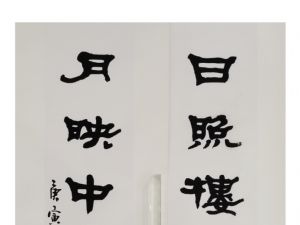 日照樓
月映中
庚寅